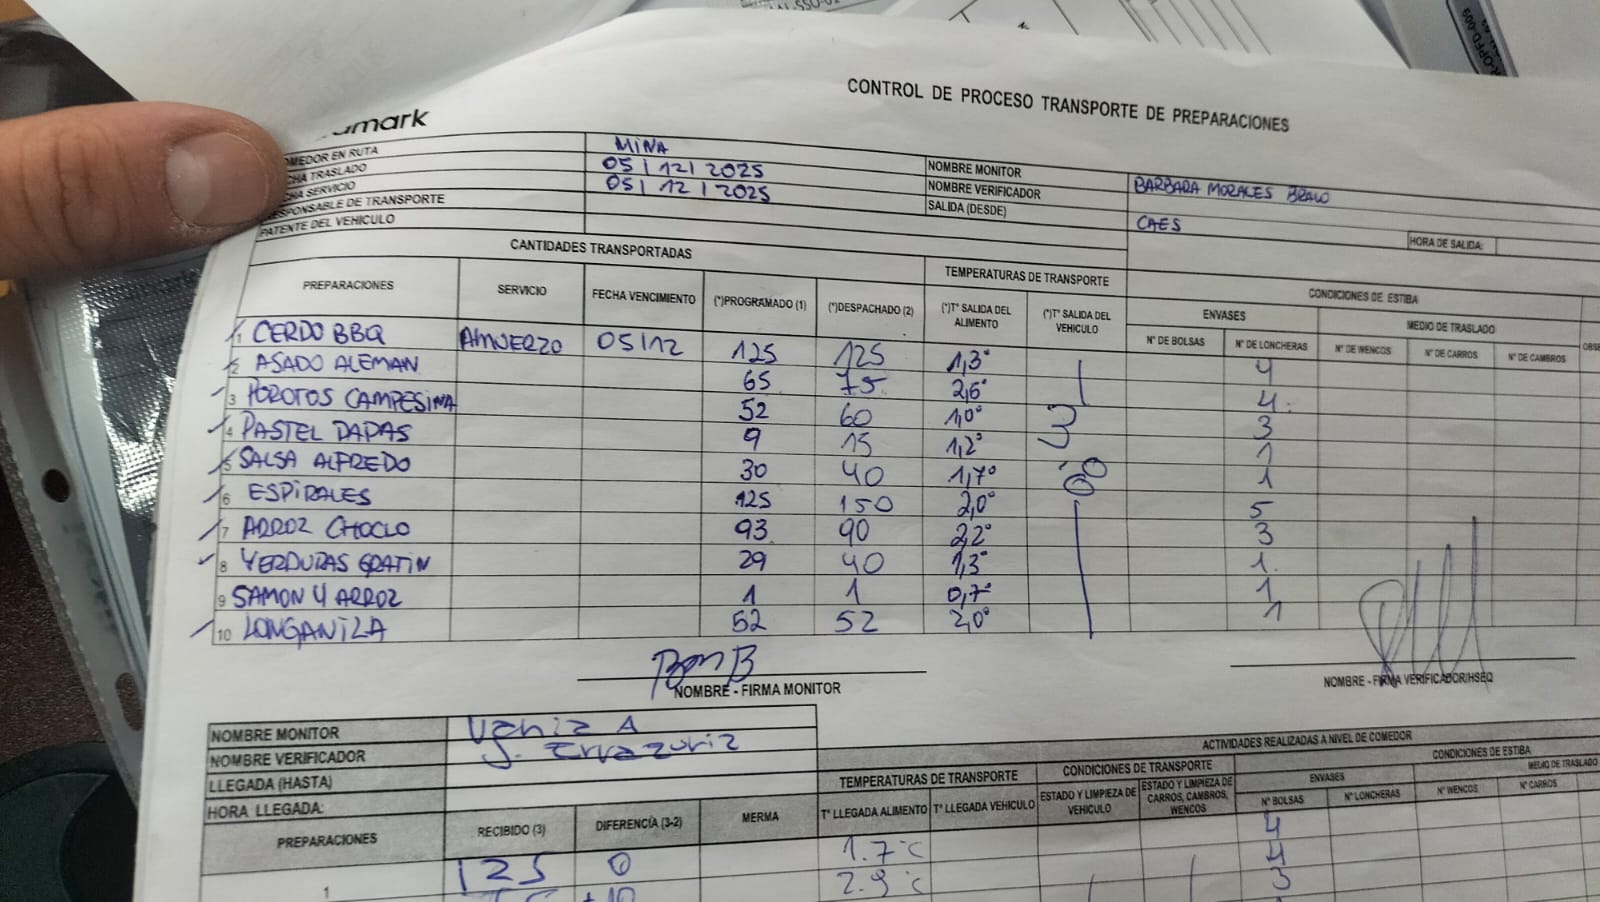 CONTROL DE PROCESO TRANSPORTE DE PREPARACIONES
amark
OMEDOR EN RUTA MINA
CHA TRASLADO 05/12/2025 NOMBRE MONITOR BARBARA MORALES BRAVO
CHA SERVICIO 05/12/2025 NOMBRE VERIFICADOR
ESPONSABLE DE TRANSPORTE SALIDA (DESDE) CAES HORA DE SALIDA:
PATENTE DEL VEHICULO
CANTIDADES TRANSPORTADAS TEMPERATURAS DE TRANSPORTE CONDICIONES DE ESTIBA
ENVASES MEDIO DE TRASLADO
PREPARACIONES SERVICIO FECHA VENCIMIENTO (*)PROGRAMADO (1) (*)DESPACHADO (2) (*)T° SALIDA DEL ALIMENTO (*)T° SALIDA DEL VEHICULO N° DE BOLSAS N° DE LONCHERAS N° DE WENCOS N° DE CARROS N° DE CAMBROS OBSE
1 CERDO BBQ ALMUERZO 05/12 125 125 1,3° 4
2 ASADO ALEMAN 65 75 2,6° 4
3 POROTOS CAMPESINA 52 60 1,0° 3
4 PASTEL PAPAS 9 15 1,2° 1
5 SALSA ALFREDO 30 40 1,7° 1
6 ESPIRALES 125 150 2,0° 5
7 ARROZ CHOCLO 93 90 2,2° 3
8 VERDURAS GRATIN 29 40 1,3° 1
9 SAMON Y ARROZ 1 1 0,7° 1
10 LONGANIZA 52 52 2,0° 1
NOMBRE - FIRMA MONITOR NOMBRE - FIRMA VERIFICADOR/HSEQ
NOMBRE MONITOR Vania A
NOMBRE VERIFICADOR J. Errazuriz
LLEGADA (HASTA)
HORA LLEGADA:
ACTIVIDADES REALIZADAS A NIVEL DE COMEDOR
TEMPERATURAS DE TRANSPORTE CONDICIONES DE TRANSPORTE CONDICIONES DE ESTIBA
ENVASES MEDIO DE TRASLADO
PREPARACIONES RECIBIDO (3) DIFERENCIA (3-2) MERMA T° LLEGADA ALIMENTO T° LLEGADA VEHICULO ESTADO Y LIMPIEZA DE VEHICULO ESTADO Y LIMPIEZA DE CARROS, CAMBROS, WENCOS N° BOLSAS N° LONCHERAS N° WENCOS N° CARROS
1 125 0 1.7°C 4
+10 2.9°C 4
3